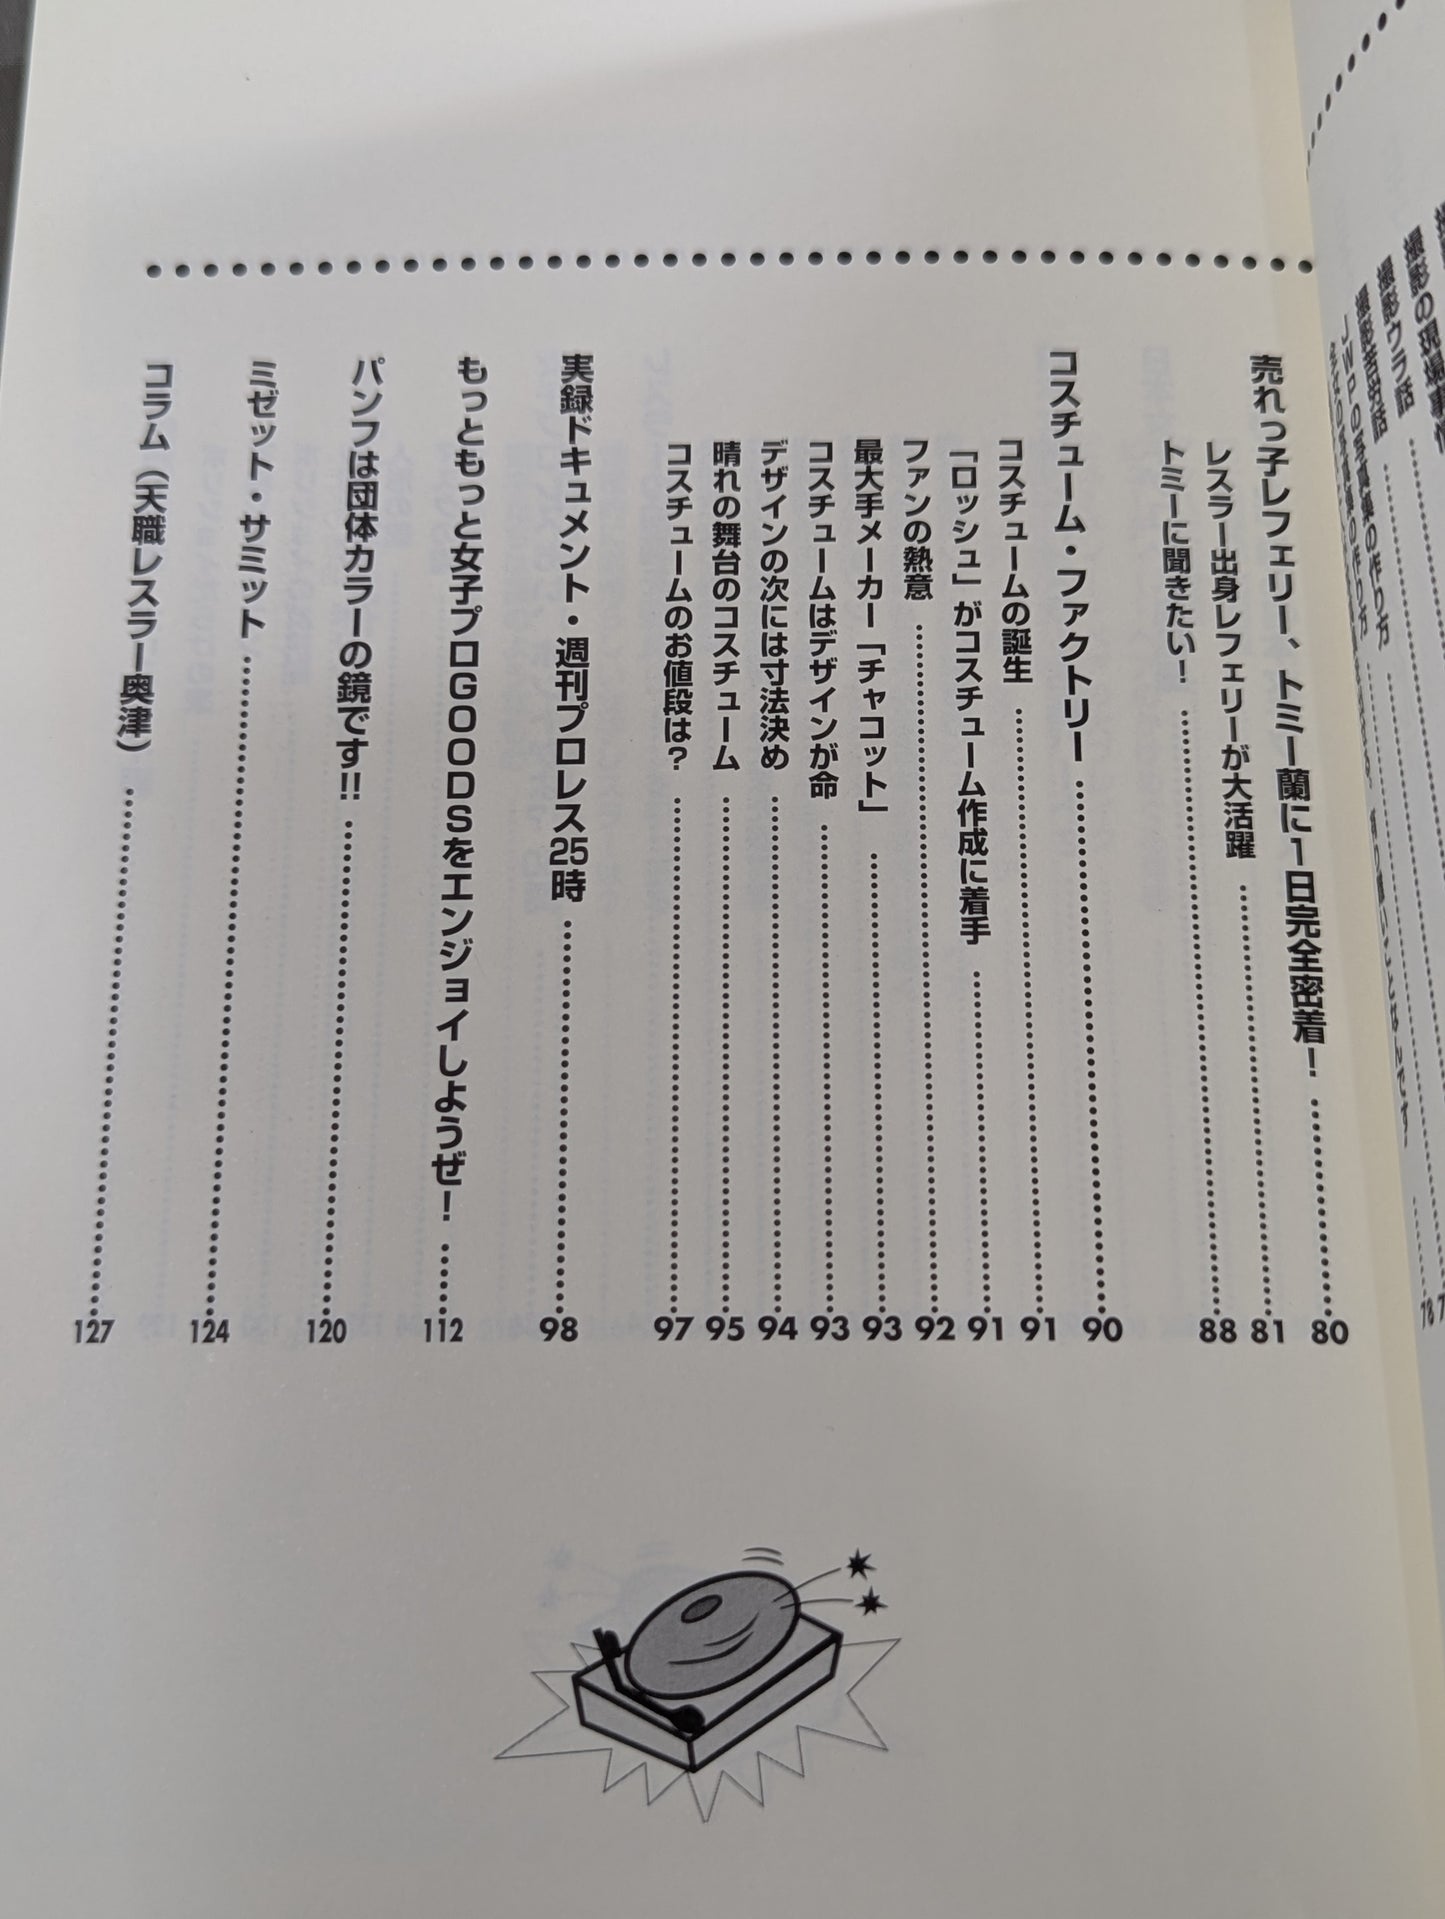 撮影の現場事情
撮影ウラ話
撮影苦労話
JWPの写真集の作り方
78
売れっ子レフェリー、トミー蘭に1日完全密着! 80
レスラー出身レフェリーが大活躍 81
トミーに聞きたい! 88
コスチューム・ファクトリー 90
コスチュームの誕生 91
「ロッシュ」がコスチューム作成に着手 91
ファンの熱意 92
最大手メーカー「チャコット」 93
コスチュームはデザインが命 93
デザインの次には寸法決め 94
晴れの舞台のコスチューム 95
コスチュームのお値段は? 97
実録ドキュメント・週刊プロレス25時 98
もっともっと女子プロGOODSをエンジョイしようぜ! 112
パンフは団体カラーの鏡です!! 120
ミゼット・サミット 124
コラム(天職レスラー奥津) 127